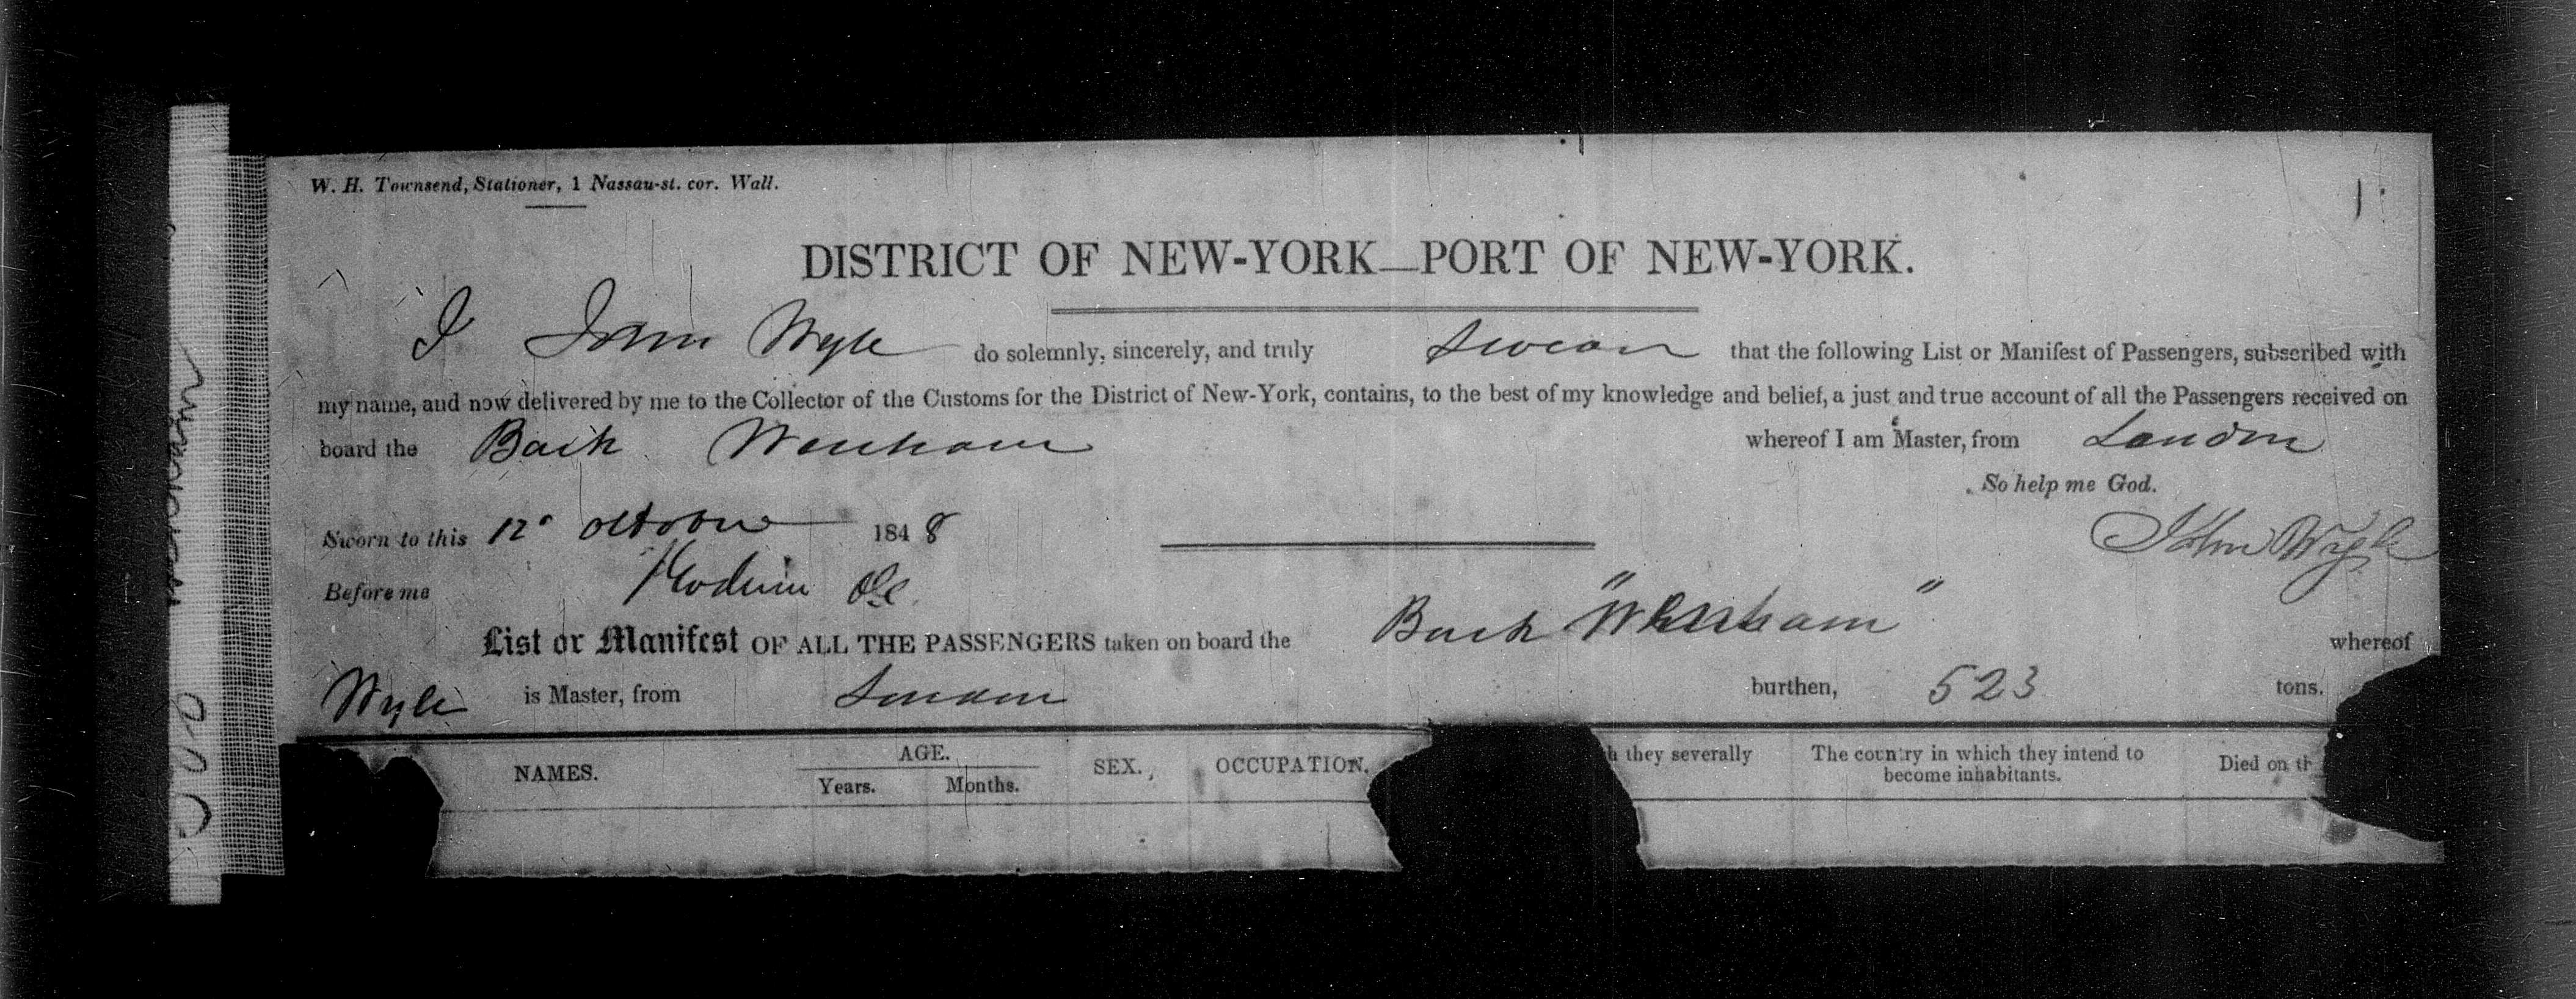 W. H. Townsend, Stationer, 1 Nassau-st. cor. Wall.
DISTRICT OF NEW-YORK—PORT OF NEW-YORK.
I John Wyle do solemnly, sincerely, and truly Swear that the following List or Manifest of Passengers, subscribed with
my name, and now delivered by me to the Collector of the Customs for the District of New-York, contains, to the best of my knowledge and belief, a just and true account of all the Passengers received on
board the Bark Wenham whereof I am Master, from London
So help me God.
Sworn to this 12 October 1848
John Wyle
Before me
List or Manifest OF ALL THE PASSENGERS taken on board the Bark "Wenham" whereof
Wyle is Master, from London burthen, 523 tons.
NAMES. AGE. SEX. OCCUPATION. they severally The country in which they intend to become inhabitants. Died on th
Years. Months.
Wenham